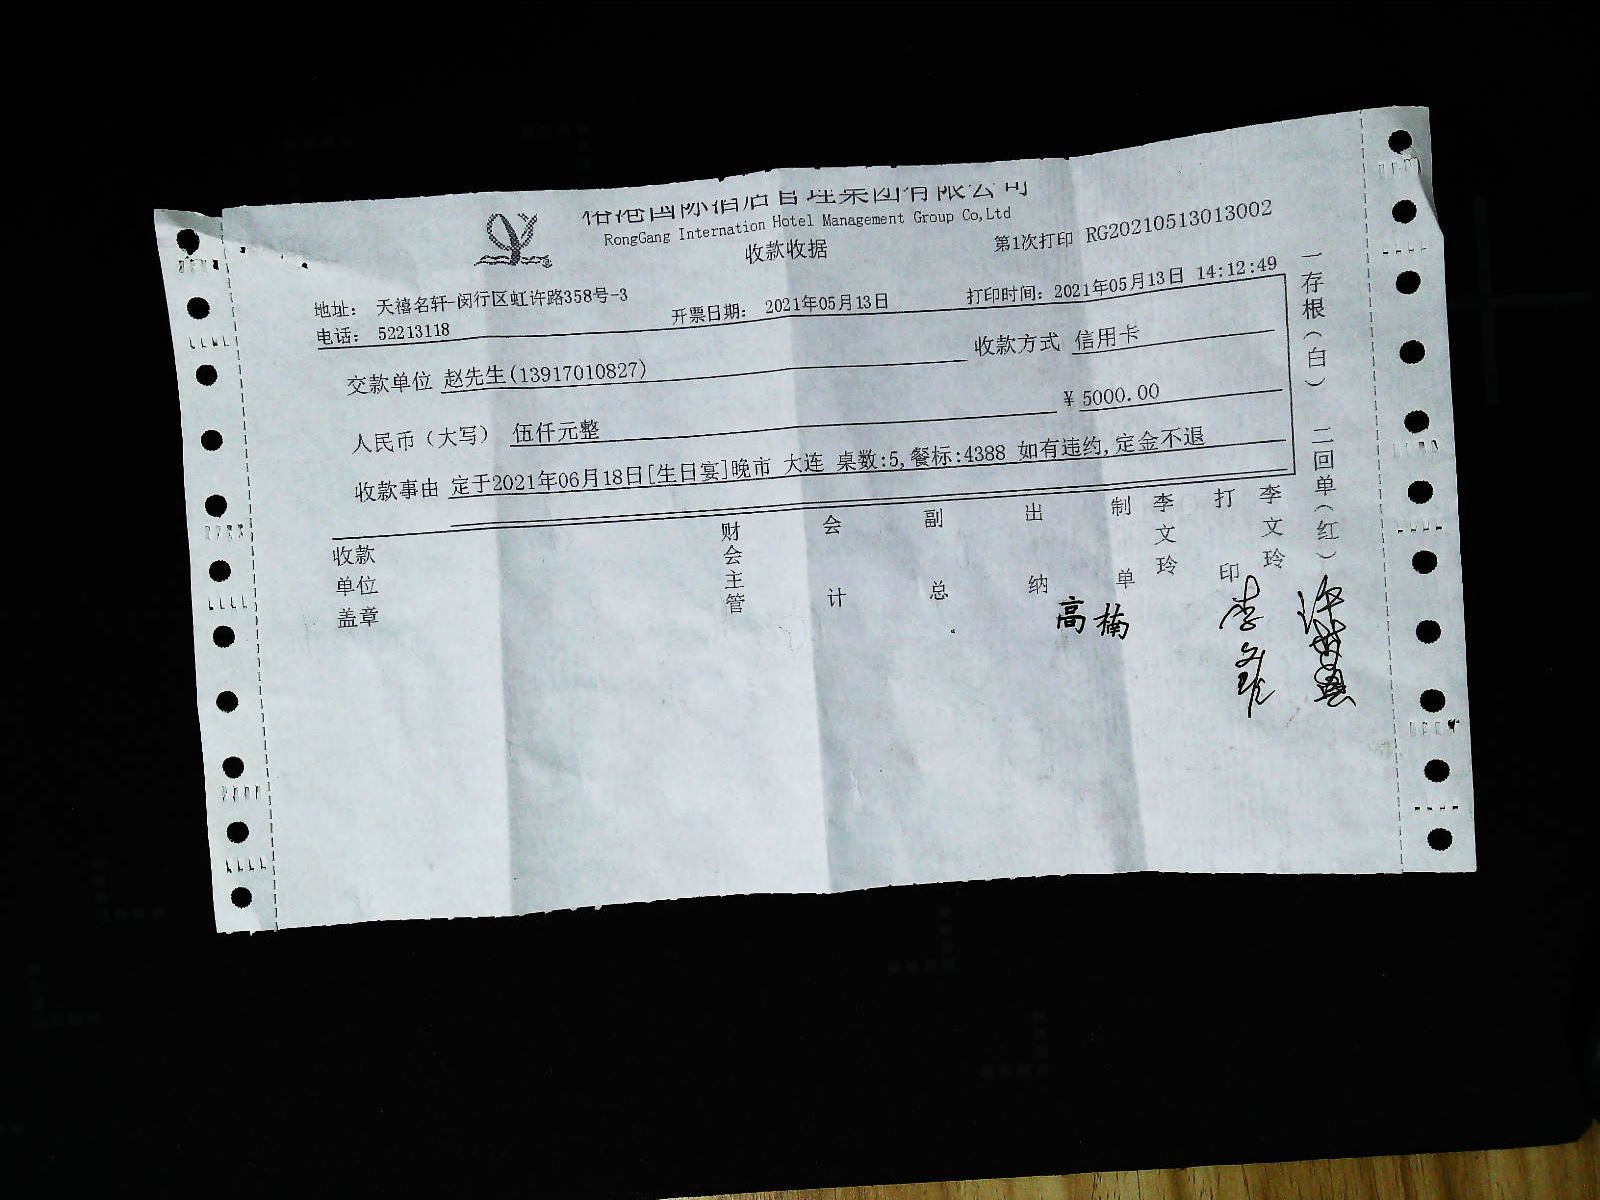 国际酒店管理集团有限公司
RongGang Internation Hotel Management Group Co,Ltd
收款收据
第1次打印 RG20210513013002
地址： 天禧名轩-闵行区虹许路358号-3
电话： 52213118
开票日期： 2021年05月13日
打印时间：2021年05月13日 14:12:49
交款单位 赵先生(13917010827)
收款方式 信用卡
人民币（大写） 伍仟元整
¥ 5000.00
收款事由 定于2021年06月18日[生日宴]晚市 大连 桌数:5,餐标:4388 如有违约,定金不退
收款单位盖章
财会主管
会计
副总
出纳
制单
李文玲
打印
李文玲
一存根（白） 二回单（红）
高楠
李